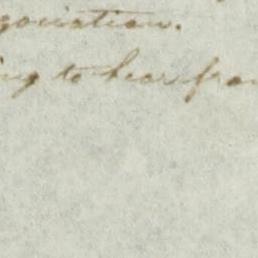 gociation.
ing to hear from